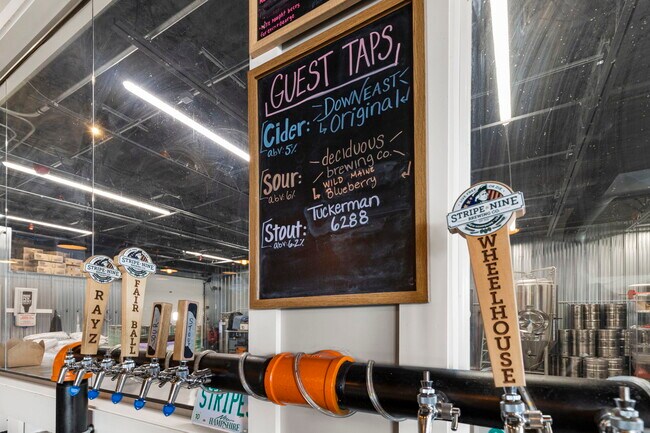 GUEST TAPS
Cider:
abv. 5%
DOWNEAST
Original
Sour:
abv. 6%
deciduous
brewing co.
WILD MAINE
Blueberry
Stout:
abv 6.2%
Tuckerman
6288
STRIPE NINE
BREWING CO.
RAYZ
STRIPE NINE
BREWING CO.
FAIR BALL
STRIPE NINE
BREWING CO.
WHEELHOUSE
STRIPE
HAMPSHIRE